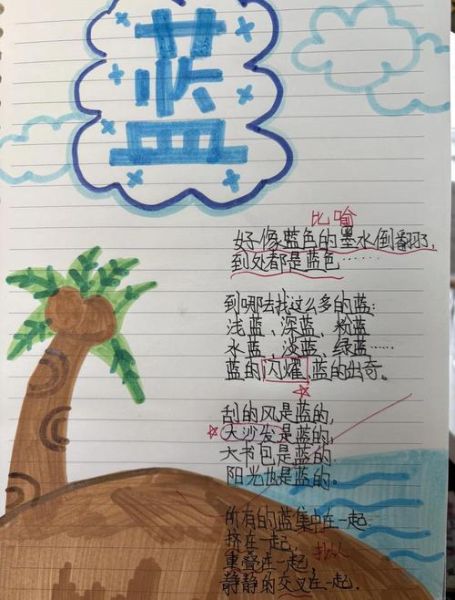 蓝
比喻
好像蓝色的墨水倒翻了,
到处都是蓝色……
到哪去找这么多的蓝:
浅蓝、深蓝、粉蓝
水蓝、淡蓝、绿蓝……
蓝的闪耀、蓝的出奇。
刮的风是蓝的,
大沙发是蓝的,
大书包是蓝的
阳光也是蓝的。
所有的蓝集中在一起
挤在一起,
拟人
重叠在一起,
静静的交叉在一起.